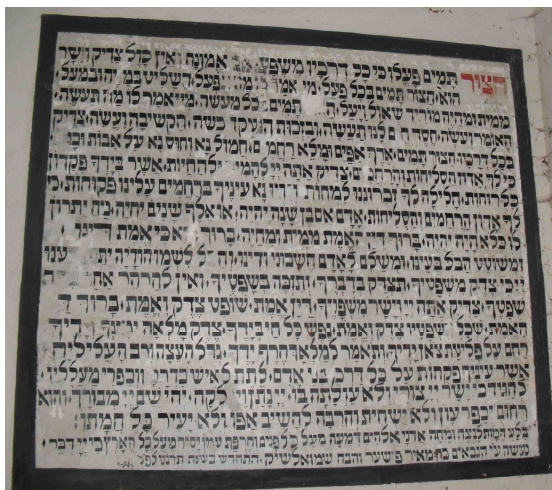 הצור תמים פעלו כי כל דרכיו משפט אמונה ואין עול צדיק וישר
הוא: הצור תמים בכל פעל מי יאמר תפעל השליט במטה ובמעל
ממית ומחיה מוריד שאול ויעל: הצור תמים בכל מעשה מי יאמר לו מה תעשה
האומר ועושה חסד חנם לנו תעשה ובזכות הנעקד כשה הקשיבה ועשה: צדיק
בכל דרכיו הצור תמים ארך אפים ומלא רחמים חמול נא וחוס נא על אבות ובנים
כי לך אדון הסליחות והרחמים: צדיק אתה יי להמית ולהחיות אשר בידך פקדון
כל רוחות חלילה לך זכרוננו למחות ויהיו נא עיניך ברחמים עלינו פקוחות כי
לך אדון הרחמים והסליחות: אדם אם בן שנה יהיה או אלף שנים יחיה מה יתרון
לו כלא היה יהיה ברוך דין האמת ממית ומחיה: ברוך הוא כי אמת דינו
ומשוטט הכל בעינו ומשלם לאדם חשבונו ודינו והכל לשמו הודיה
יי כי צדק משפטיך תצדק בדברך ותזכה בשפטיך ואין להרהר אחר
שפטיך צדיק אתה יי וישר משפטיך: דין אמת שופט צדק ואמת ברוך
האמת שכל משפטיו צדק ואמת: נפש כל חי בידך צדק מלאה
רחם על פליטת צאן ידיך ותאמר למלאך הרף ידיך: גדול העצה ורב העליליה
אשר עיניך פקחות על כל דרכי בני אדם לתת לאיש כדרכיו וכפרי מעלליו
להגיד כי ישר יי צורי ולא עולתה בו: יי נתן ויי לקח יהי שם יי מבורך: והוא
רחום יכפר עון ולא ישחית והרבה להשיב אפו ולא יעיר כל חמתו:
בלע המות לנצח ומחה אדני אלהים דמעה מעל כל פנים וחרפת עמו יסיר מעל כל הארץ כי יי דבר:
נעשה ע״י הגבאים מאיר פישער שמואל שיק: התחדש בשנת תרנט לפק